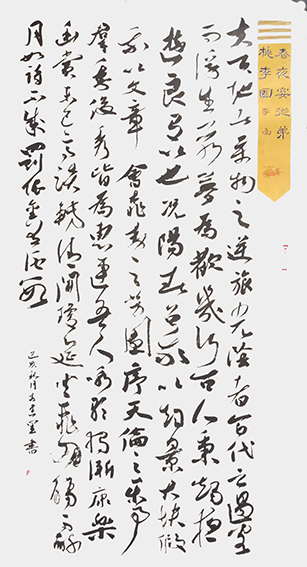 春夜宴從弟
桃李園 李白
夫天地者萬物之逆旅也光陰者百代之過客
而浮生若夢為歡幾何古人秉燭夜
遊良有以也況陽春召我以煙景大塊假
我以文章會桃李之芳園序天倫之樂事
群季俊秀皆為惠連吾人詠歌獨慚康樂
幽賞未已高談轉清開瓊筵坐花飛羽觴而醉
月如詩不成罰依金谷酒數
己亥秋月 書